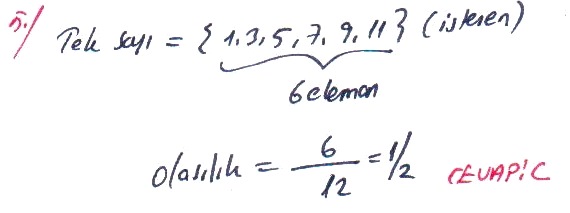 5-/ Tek sayı = { 1,3,5,7,9,11} (istenen)
6 eleman
Olasılık = 6/12 = 1/2 CEVAP:C